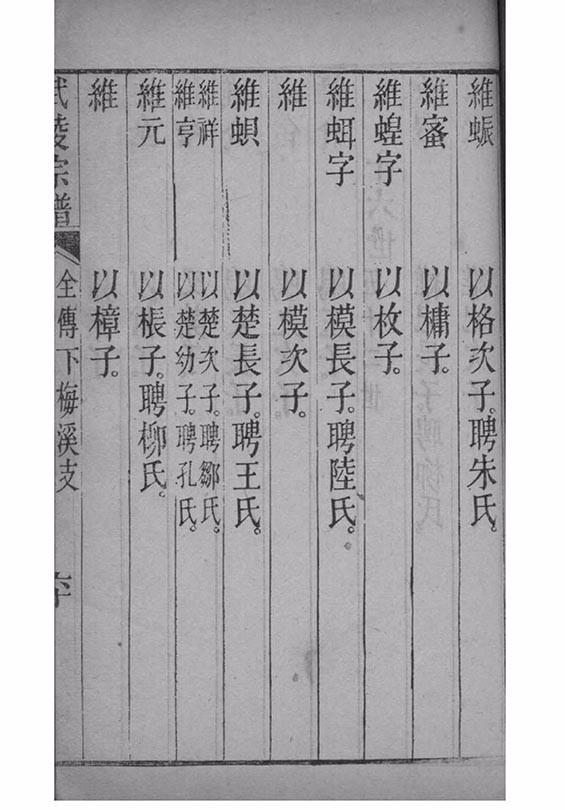 維蜄 以格次子。聘朱氏。
維蜜 以槦子。
維蝗字 以枚子。
維蛘字 以模長子。聘陸氏。
維 以模次子。
維蛽 以楚長子。聘王氏。
維祥 以楚次子。聘鄒氏。
維亨 以楚幼子。聘孔氏。
維元 以棖子。聘柳氏。
維 以樟子。
武陵宗譜 全傳下梅溪支